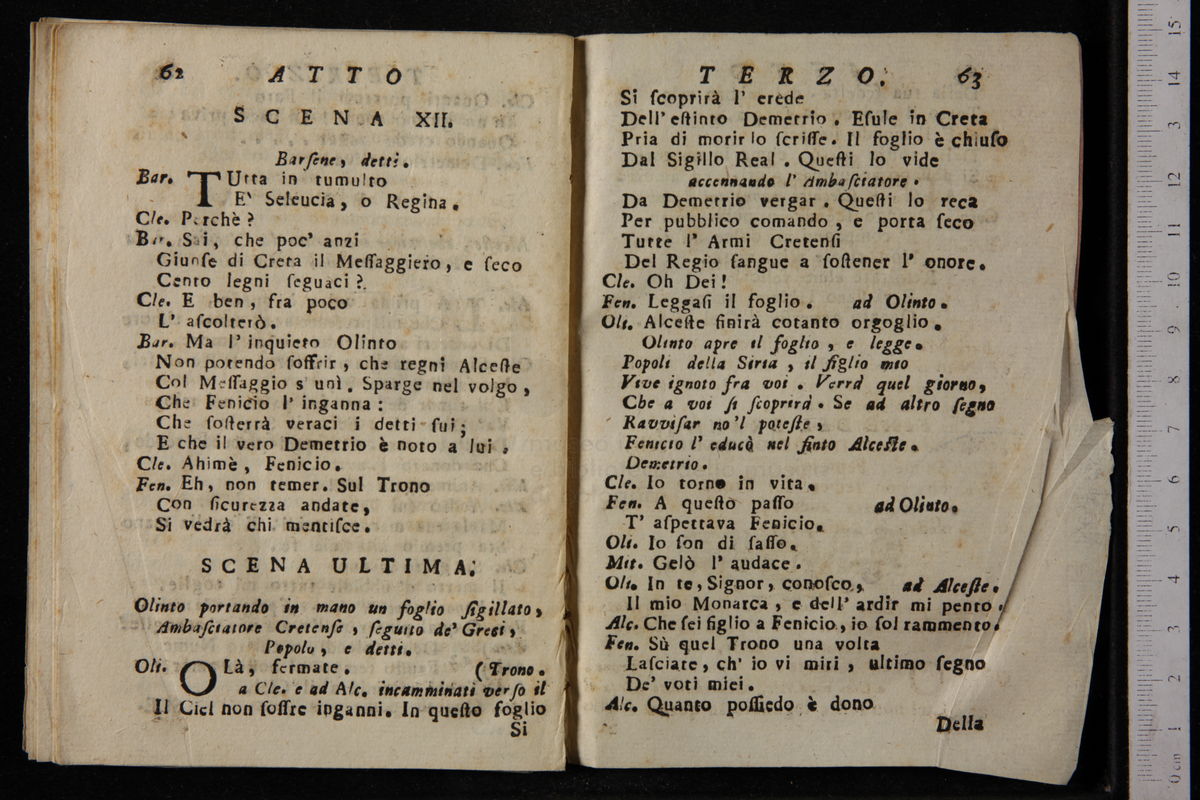 62 ATTO
SCENA XII.
Barſene, detti.
Bar. TUtta in tumulto
E' Seleucia, o Regina.
Cle. Perchè?
Bar. Sai, che poc' anzi
Giunſe di Creta il Meſſaggiero, e ſeco
Cento legni ſeguaci?
Cle. E ben, fra poco
L' aſcolterò.
Bar. Ma l' inquieto Olinto
Non potendo ſoffrir, che regni Alceſte
Col Meſſaggio s' unì. Sparge nel volgo,
Che Fenicio l' inganna:
Che ſoſterrà veraci i detti ſui;
E che il vero Demetrio è noto a lui.
Cle. Ahimè, Fenicio.
Fen. Eh, non temer. Sul Trono
Con ſicurezza andate,
Si vedrà chi mentiſce.
SCENA ULTIMA.
Olinto portando in mano un foglio ſigillato,
Ambaſciatore Cretenſe, ſeguito de' Greci,
Popolo, e detti.
Oli. OLà, fermate. (Trono.
a Cle. e ad Alc. incamminati verſo il
Il Ciel non ſoffre inganni. In queſto foglio
Si
TERZO. 63
Si ſcoprirà l' erede
Dell' eſtinto Demetrio. Eſule in Creta
Pria di morir lo ſcriſſe. Il foglio è chiuſo
Dal Sigillo Real. Queſti lo vide
accennando l' Ambaſciatore.
Da Demetrio vergar. Queſti lo reca
Per pubblico comando, e porta ſeco
Tutte l' Armi Cretenſi
Del Regio ſangue a ſoſtener l' onore.
Cle. Oh Dei!
Fen. Leggaſi il foglio. ad Olinto.
Oli. Alceſte finirà cotanto orgoglio.
Olinto apre il foglio, e legge.
Popoli della Siria, il figlio mio
Vive ignoto fra voi. Verrà quel giorno,
Che a voi ſi ſcoprirà. Se ad altro ſegno
Ravviſar no'l poteſte,
Fenicio l' educò nel finto Alceſte.
Demetrio.
Cle. Io torno in vita.
Fen. A queſto paſſo ad Olinto.
T' aſpettava Fenicio.
Oli. Io ſon di ſaſſo.
Mit. Gelò l' audace.
Oli. In te, Signor, conoſco, ad Alceſte.
Il mio Monarca, e dell' ardir mi pento.
Alc. Che ſei figlio a Fenicio, io ſol rammento.
Fen. Sù quel Trono una volta
Laſciate, ch' io vi miri, ultimo ſegno
De' voti miei.
Alc. Quanto poſſiedo è dono
Della
0 cm 1 2 3 4 5 6 7 8 9 10 11 12 13 14 15